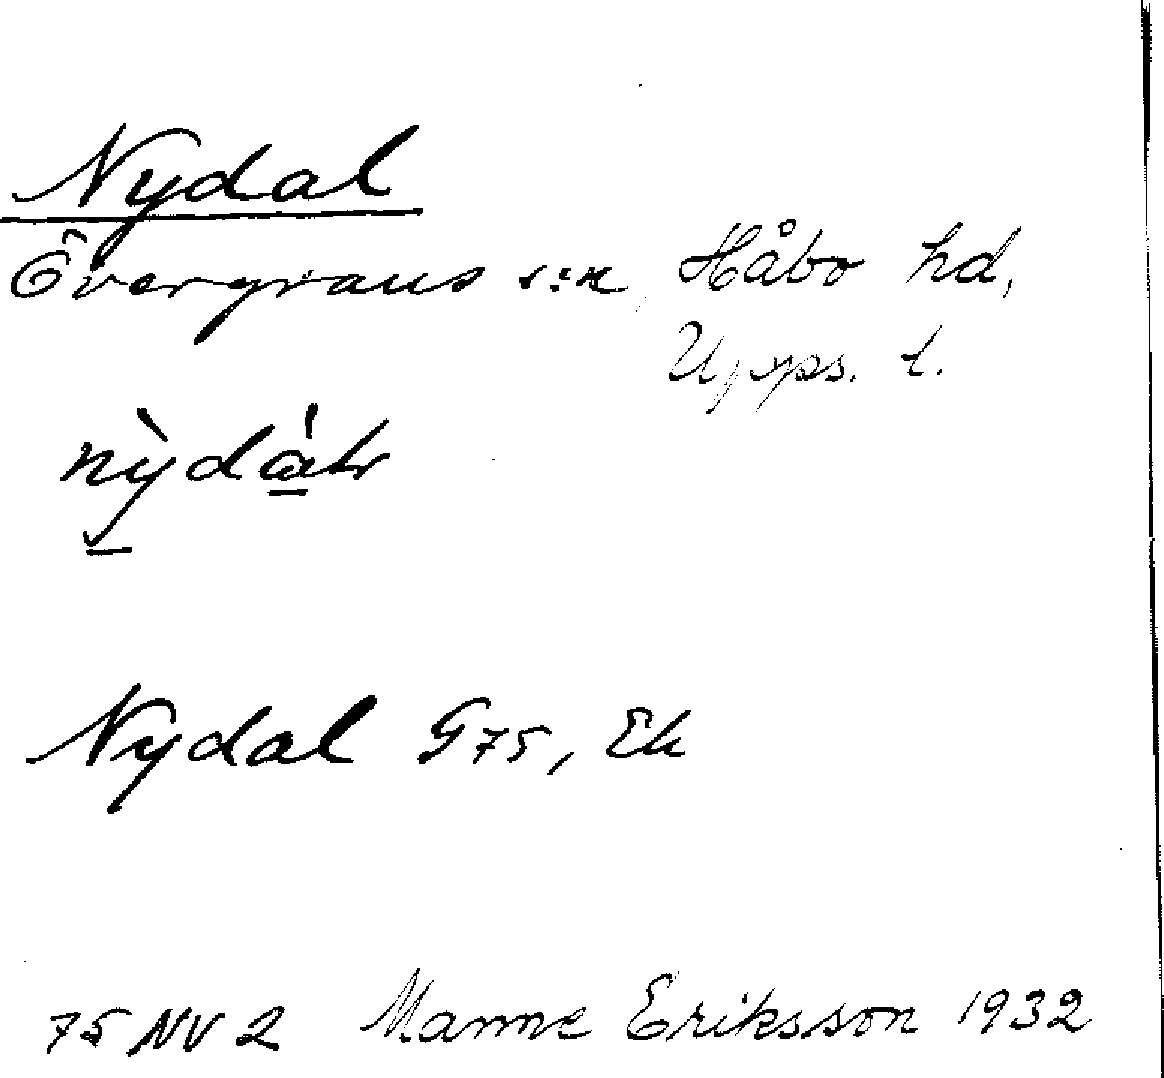 Nydal
Övergrans s:n, Håbo hd,
Upps. l.
nỳdàl
Nydal G75, Ek
75 NV 2 Manne Eriksson 1932